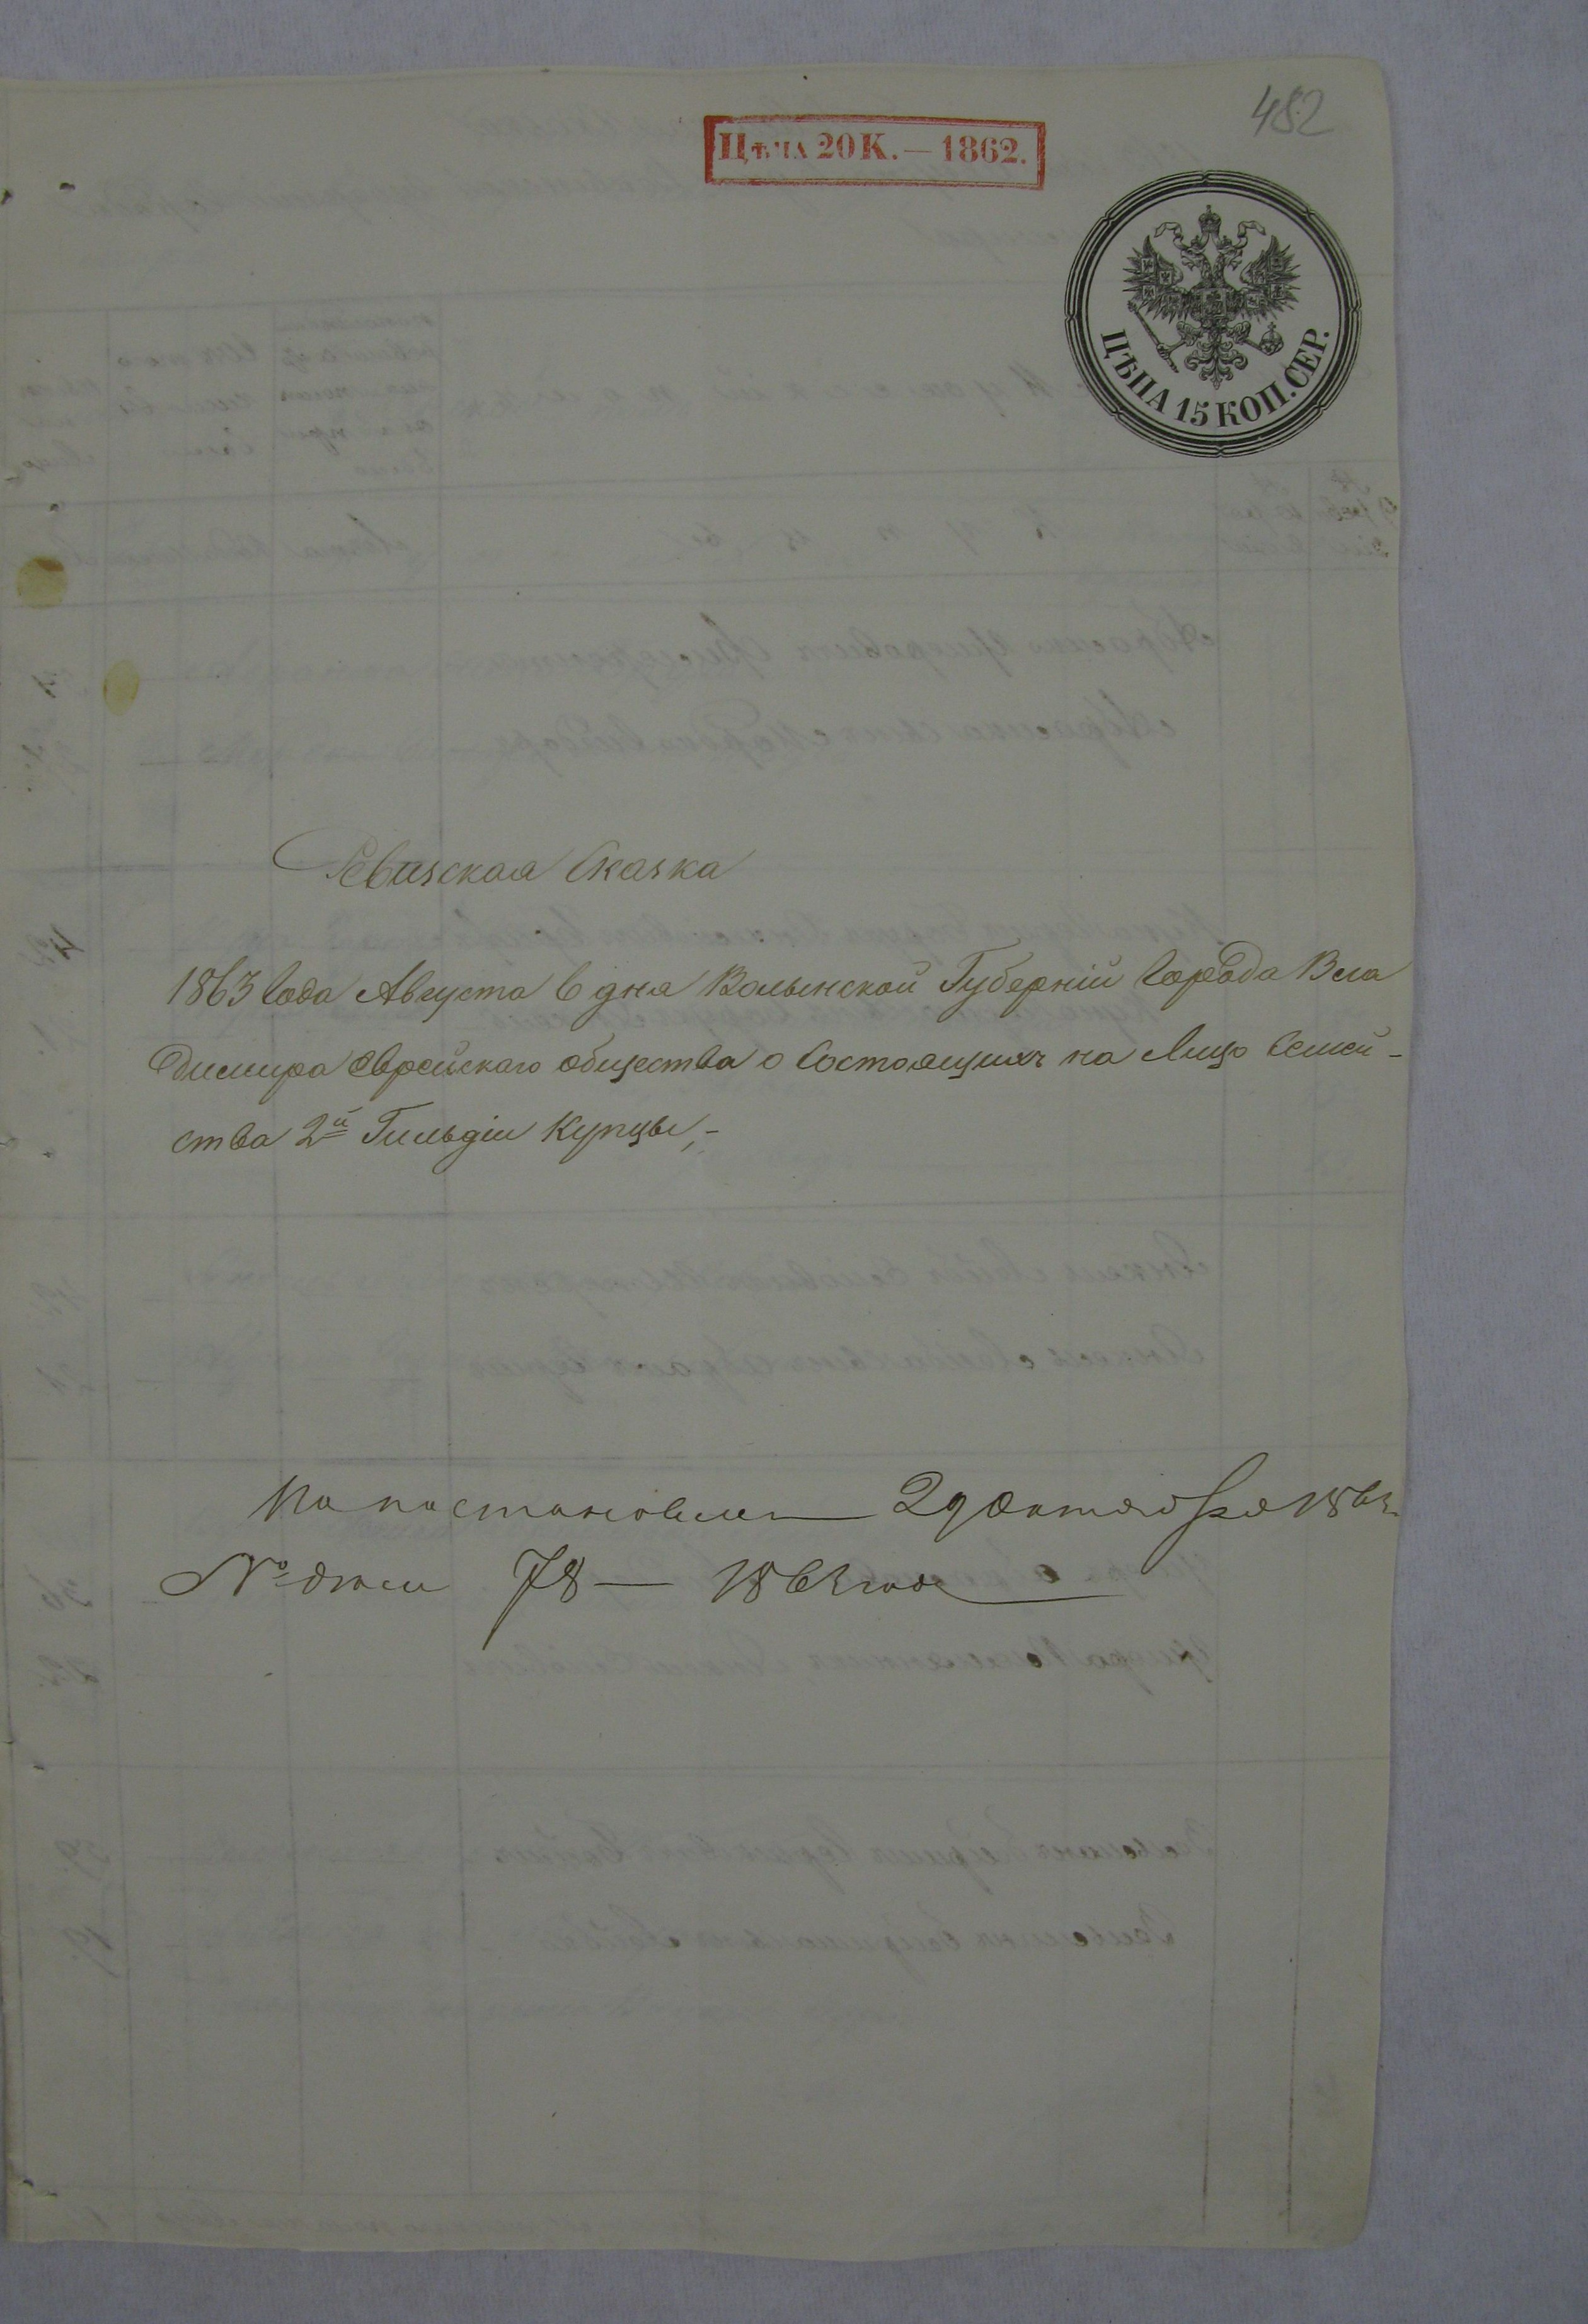 482
Цѣна 20 К. — 1862.
ЦѢНА 15 КОП. СЕР.
Ревизская Сказка
1863 Года Августа 6 дня Волынской Губерніи Города Вла
димира Еврейскаго общества о Состоящихъ на Лицо Семей-
ства 2й Гильдіи Купцы,-
По постановлен 29 октября 1863
№ 78 — 1863 года